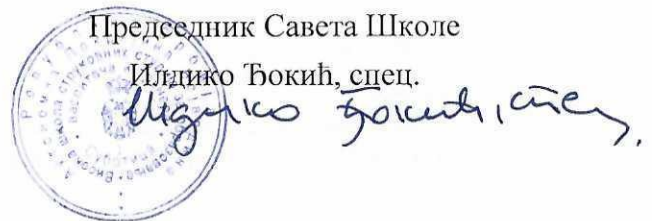 Председник Савета Школе
Илдико Ђокић, спец.
Илдико Ђокић, спец.
Суботица